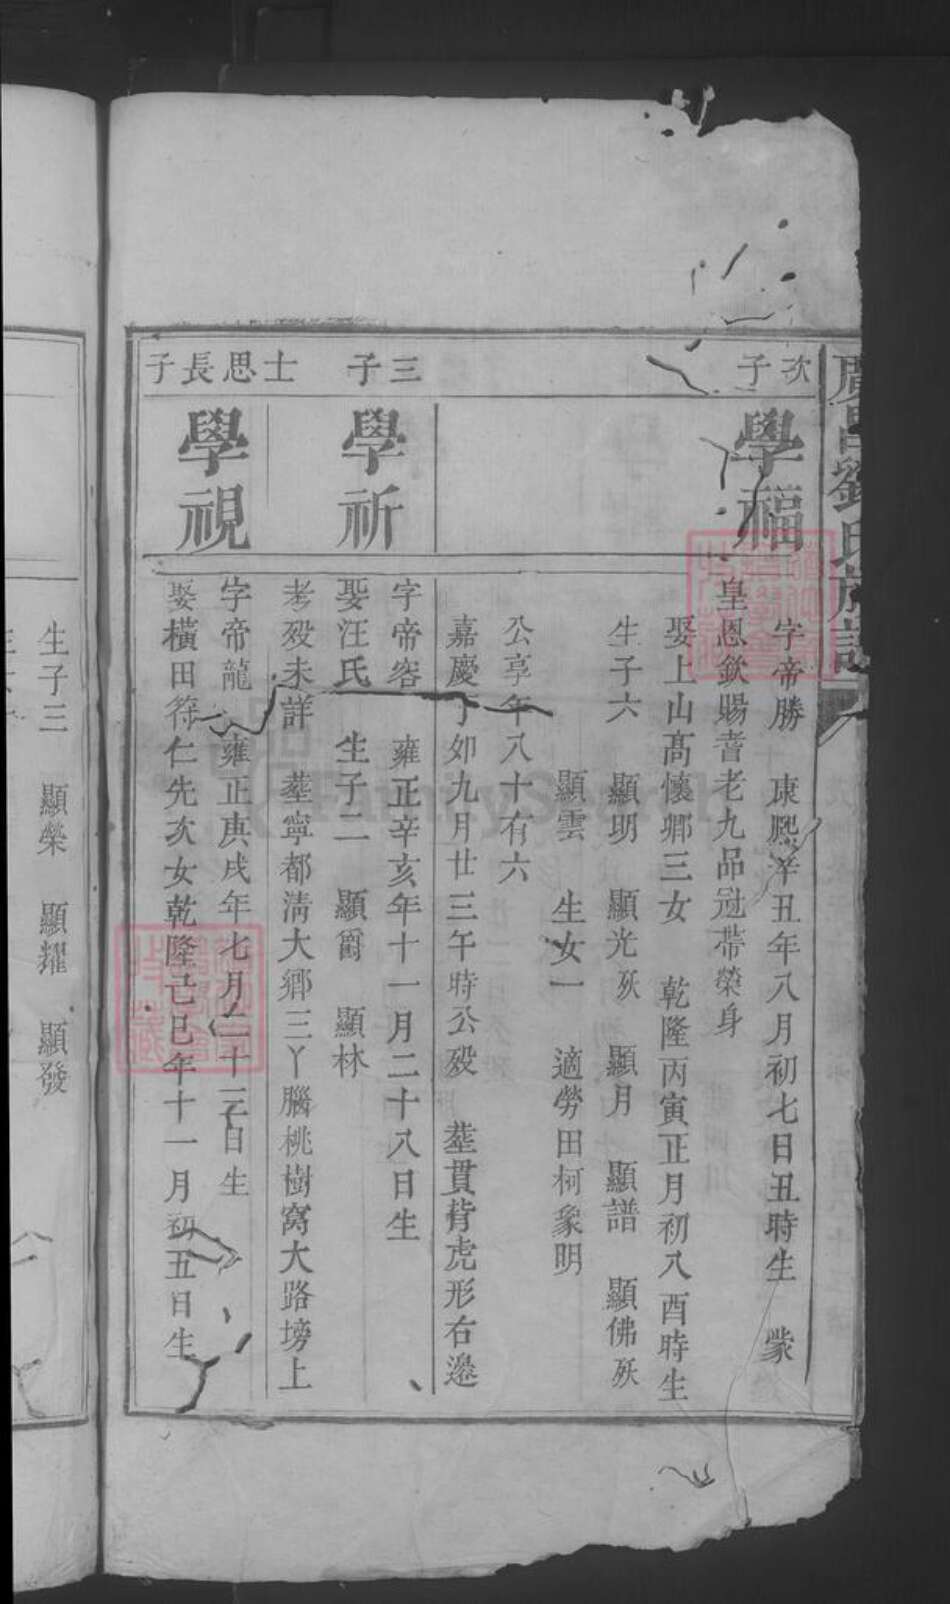 廣昌劉氏族譜
次子
學福
字帝勝 康熙辛丑年八月初七日丑時生 蒙
皇恩欽賜耆老九品冠帶榮身
娶上山高懷鄉三女 乾隆丙寅正月初八酉時生
生子六 顯明 顯光殀 顯月 顯譜 顯佛殀
顯雲 生女一 適勞田柯象明
公享年八十有六
嘉慶丁卯九月廿三午時公殁 塟貫背虎形右邉
三子
學祈
字帝容 雍正辛亥年十一月二十八日生
娶汪氏 生子二 顯爵 顯林
老殁未詳 塟寧都清大鄉三丫腦桃樹窩大路塝上
士思長子
學視
字帝龍 雍正庚戌年七月二十三日生
娶橫田符仁先次女乾隆己巳年十一月初五日生
生子三 顯榮 顯耀 顯發
FamilySearch